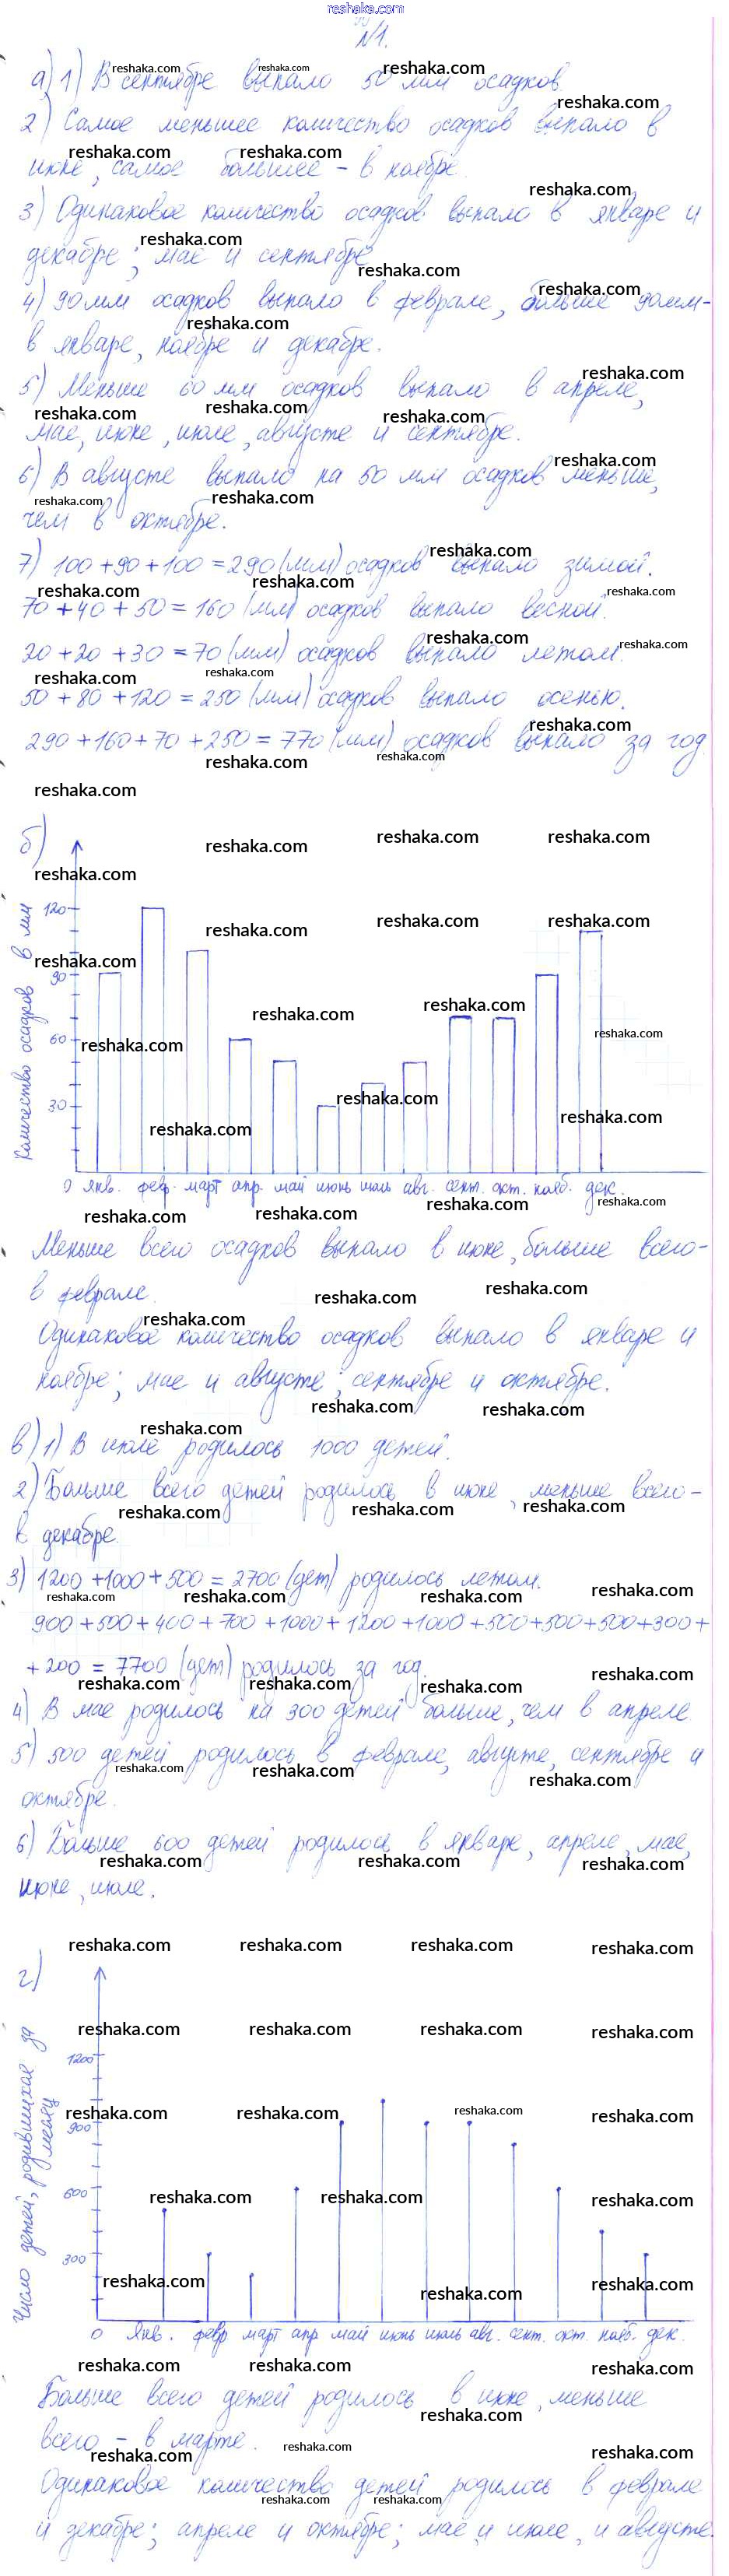 reshaka.com
№1.
а) 1) В сентябре выпало 50 мм осадков.
2) Самое меньшее количество осадков выпало в
июне, самое большее – в ноябре.
3) Одинаковое количество осадков выпало в январе и
декабре; мае и сентябре.
4) 90 мм осадков выпало в феврале, больше 90 мм-
в январе, ноябре и декабре.
5) Меньше 60 мм осадков выпало в апреле,
мае, июне, июле, августе и сентябре.
6) В августе выпало на 50 мм осадков меньше,
чем в октябре.
7) 100 + 90 + 100 = 290 (мм) осадков выпало зимой.
70 + 40 + 50 = 160 (мм) осадков выпало весной.
20 + 20 + 30 = 70 (мм) осадков выпало летом.
50 + 80 + 120 = 250 (мм) осадков выпало осенью.
290 + 160 + 70 + 250 = 770 (мм) осадков выпало за год
б)
Количество осадков в мм
120
90
60
30
0 янв. февр. март апр. май июнь июль авг. сент. окт. нояб. дек.
Меньше всего осадков выпало в июне, больше всего-
в феврале.
Одинаковое количество осадков выпало в январе и
ноябре; мае и августе; сентябре и октябре.
в) 1) В июле родилось 1000 детей.
2) Больше всего детей родилось в июне, меньше всего-
в декабре.
3) 1200 + 1000 + 500 = 2700 (дет) родилось летом.
900 + 500 + 400 + 700 + 1000 + 1200 + 1000 + 500 + 500 + 500 + 300 +
+ 200 = 7700 (дет) родилось за год.
4) В мае родилось на 300 детей больше, чем в апреле
5) 500 детей родилось в феврале, августе, сентябре и
октябре.
6) Больше 600 детей родилось в январе, апреле, мае,
июне, июле.
г)
Число детей, родившихся за
месяц
1200
900
600
300
0 янв. февр март апр май июнь июль авг. сент. окт. нояб. дек.
Больше всего детей родилось в июне, меньше
всего – в марте.
Одинаковое количество детей родилось в феврале
и декабре; апреле и октябре; мае, и июле, и августе.